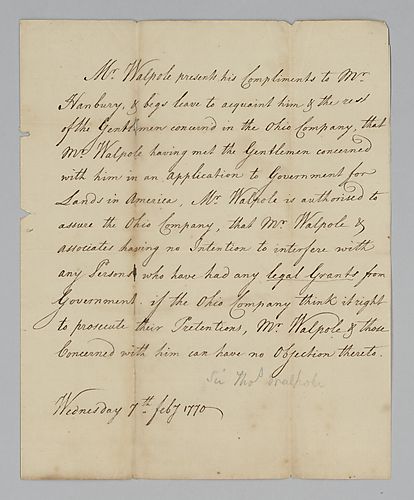 Mr. Walpole presents his Compliments to Mr.
Hanbury, & begs leave to acquaint him & the rest
of the Gentlemen concernd in the Ohio Company, that
Mr. Walpole having met the Gentlemen concerned
with him in an Application to Government for
Lands in America, Mr. Walpole is authorised to
assure the Ohio Company, that Mr. Walpole &
associates having no Intention to interfere with
any Persons who have had any legal Grants from
Government. if the Ohio Company think it right
to prosecute their Pretentions, Mr. Walpole & those
Concerned with him can have no Objection thereto.
Sir Thos. Walpole
Wednesday 7th. feby 1770